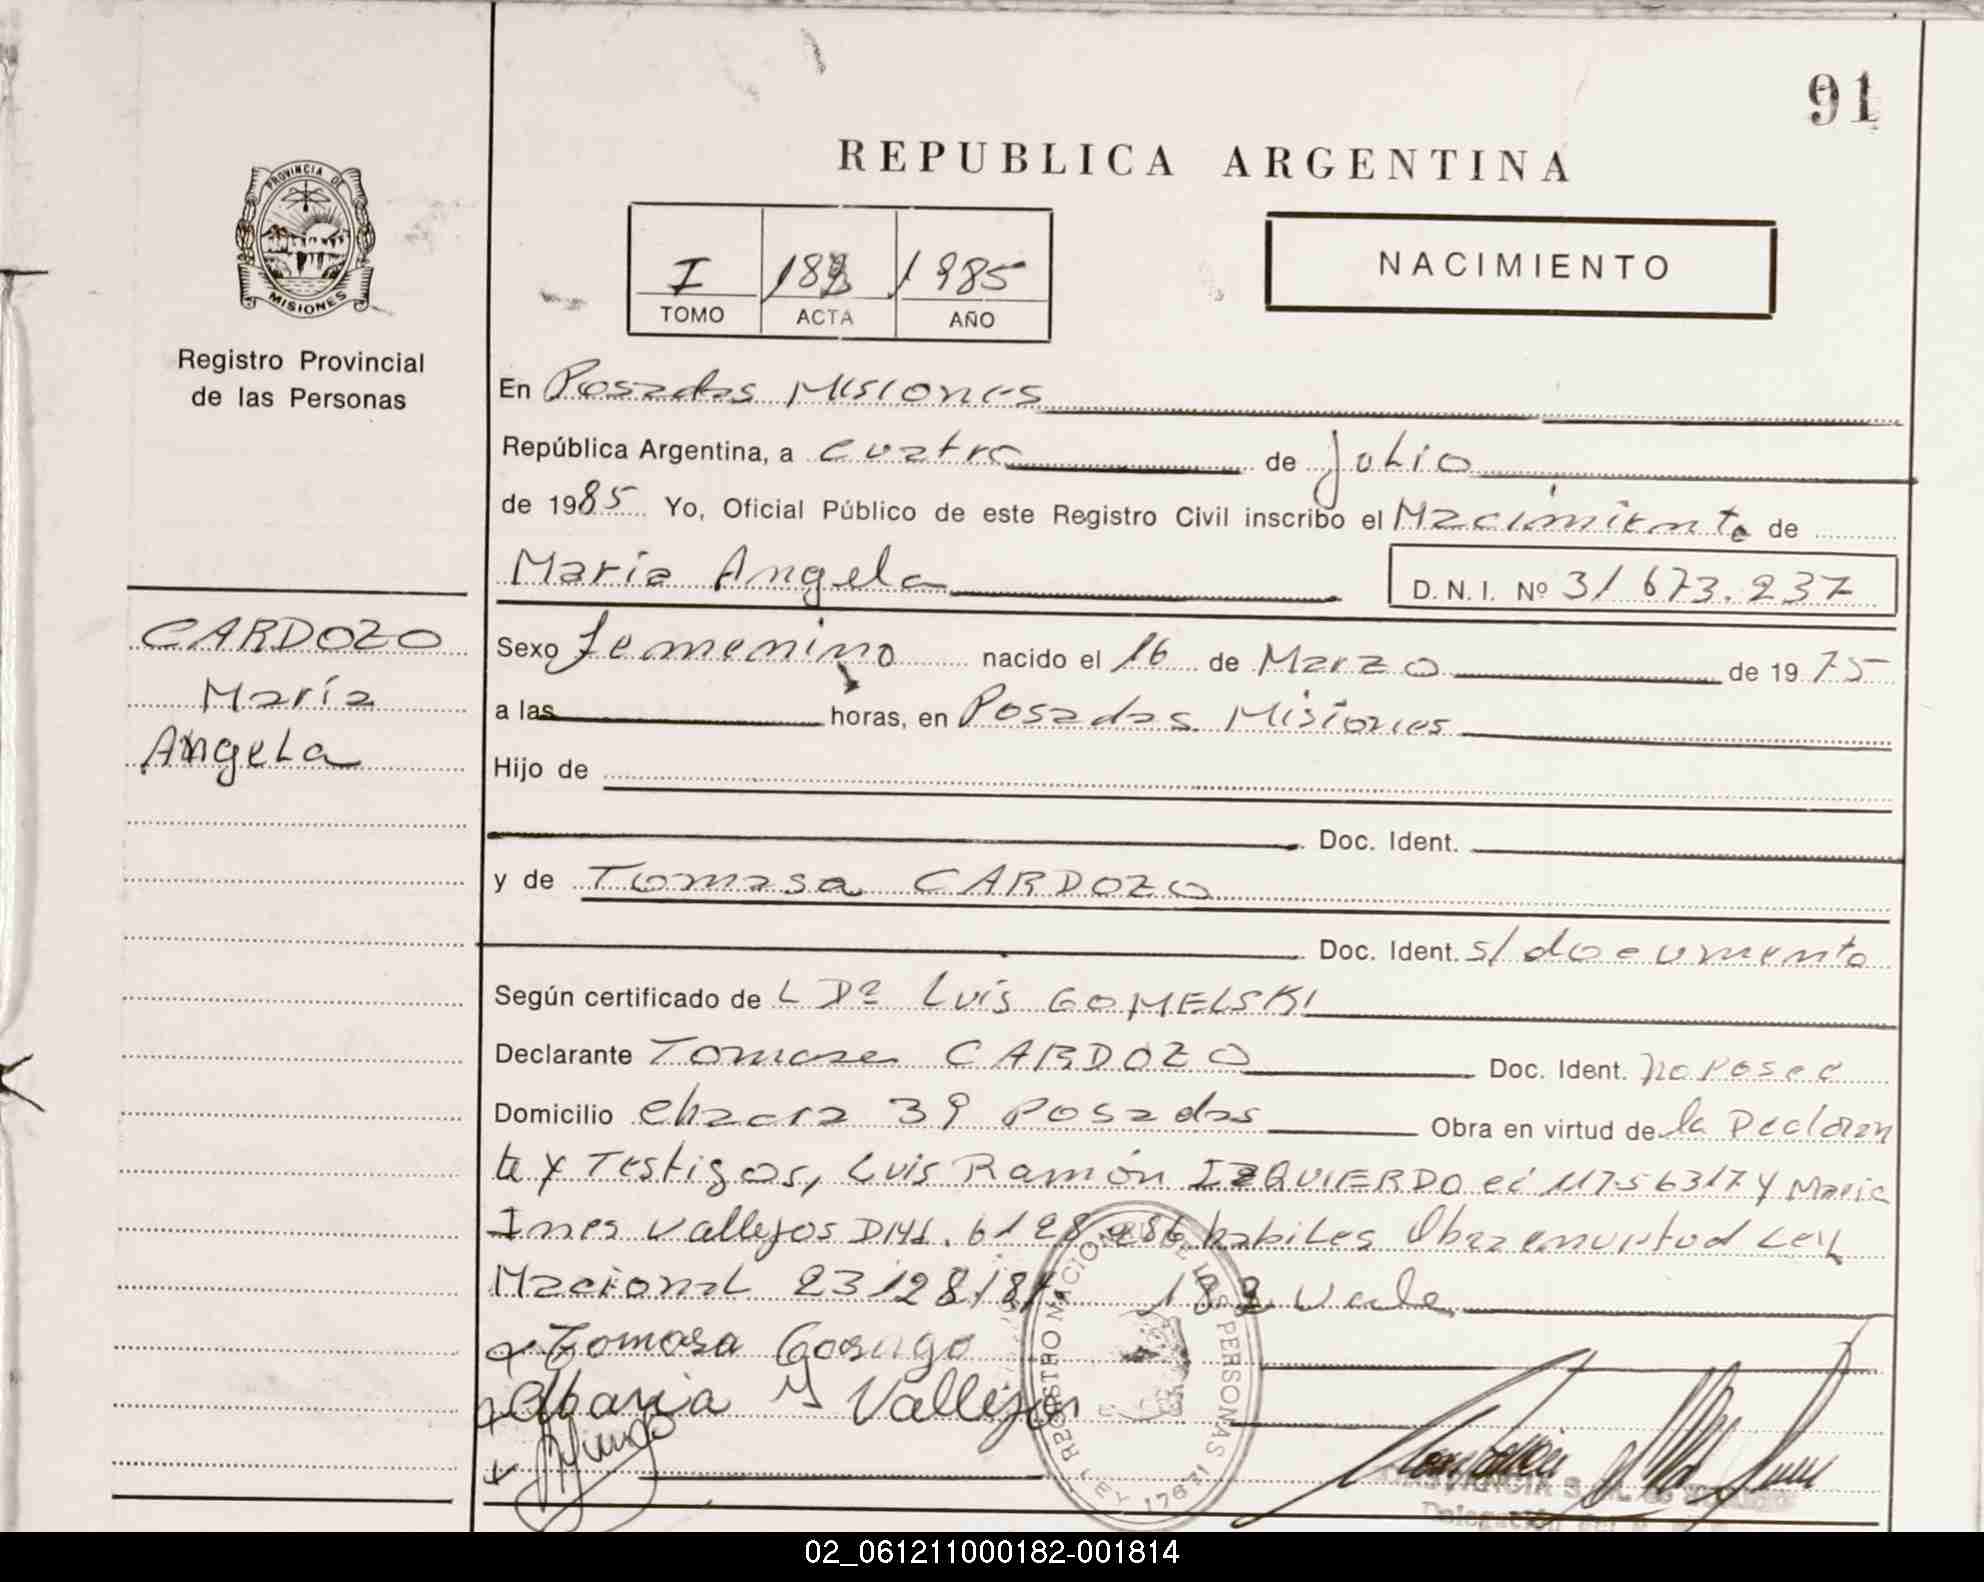 91
REPUBLICA ARGENTINA
PROVINCIA DE
MISIONES
Registro Provincial
de las Personas
I 182 1985
TOMO ACTA AÑO
NACIMIENTO
En Posadas Misiones
República Argentina, a cuatro de Julio
de 1985 Yo, Oficial Público de este Registro Civil inscribo el Nacimiento de
María Angela
D. N. I. Nº 31 673.237
CARDOZO
María
Angela
Sexo femenino nacido el 16 de Marzo de 1975
a las horas, en Posadas Misiones
Hijo de
Doc. Ident.
y de Tomasa CARDOZO
Doc. Ident. s/documento
Según certificado de L Dº Luis GOMELSKI
Declarante Tomasa CARDOZO Doc. Ident. no posee
Domicilio chacra 39 Posadas Obra en virtud de la Declaran
te y Testigos, Luis Ramón IZQUIERDO ci 11756317 y Maria
Ines Vallejos DNI. 6128956 habiles Obra en virtud Ley
Nacional 23128/84. 182 vale
Tomasa
Maria Y Vallejos
REGISTRO NACIONAL DE LAS PERSONAS
LEY 17671
02_061211000182-001814